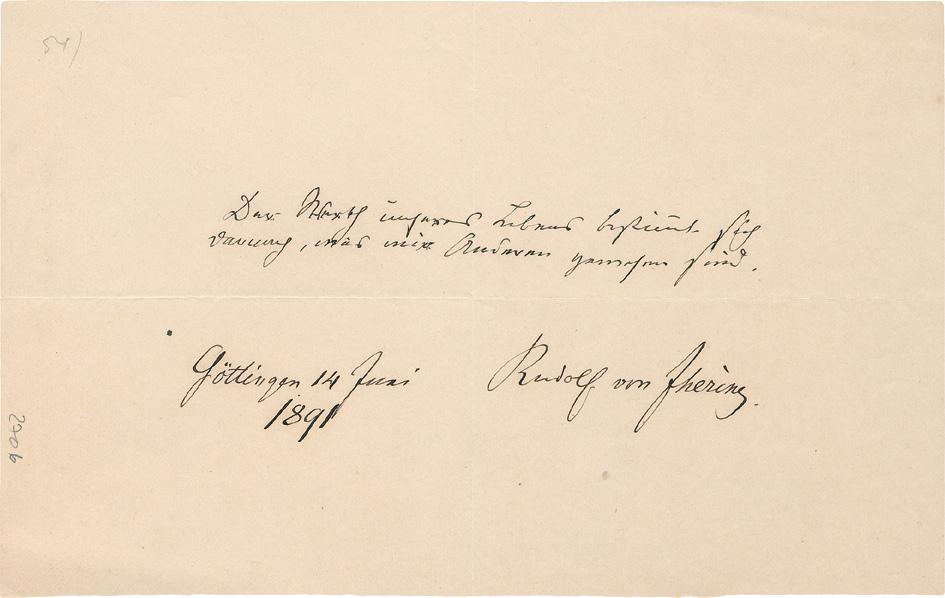 54)
Der Werth unseres Lebens bestimmt sich
darnach, was wir Anderen gewesen sind.
Göttingen 14 Juni
1891
Rudolf von Jhering.